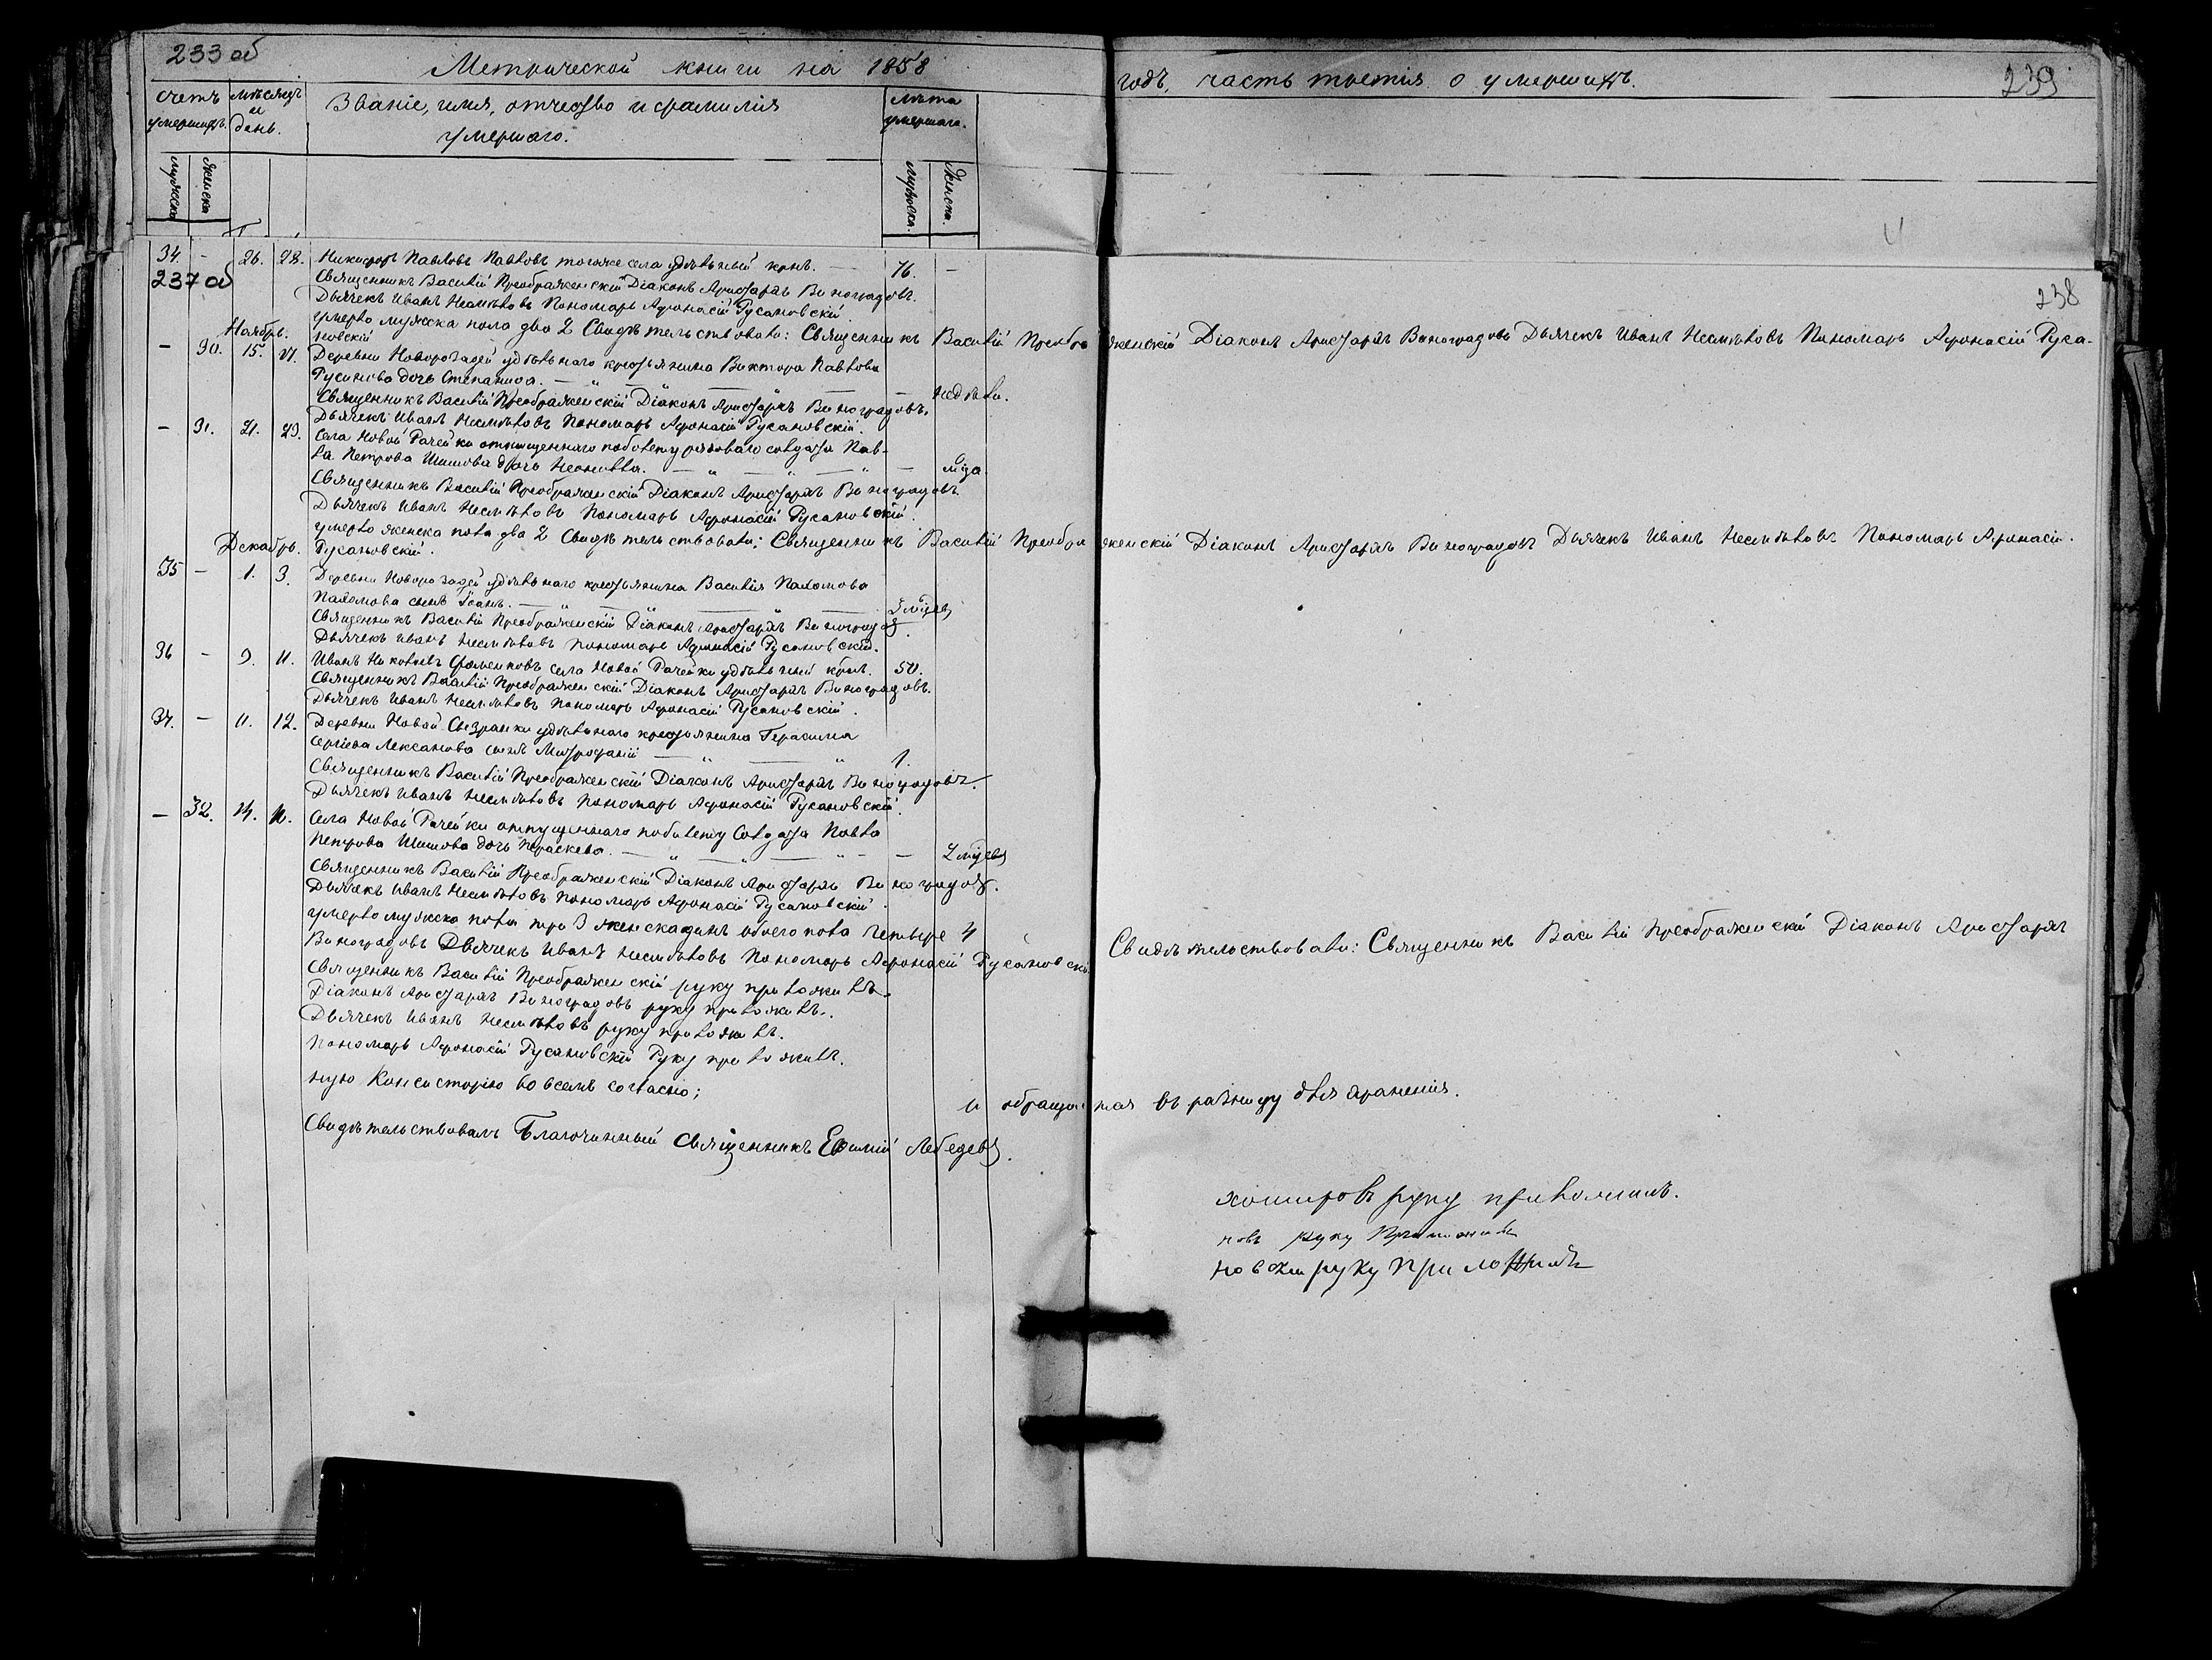 233 об
Метрической книги на 1858 годъ, часть третія о умершихъ.
239
счетъ умершихъ.
мѣсяцъ и день.
Званіе, имя, отчество и фамилія умершаго.
Лѣта умершаго.
мужеска
женска
мужеска.
женска.
34. - 26. 28. Никифоръ Павловъ Павловъ тогоже села удѣльный крнъ. — 76. -
237 об
238
Священникъ Василій Преображенскій Діаконъ Аристархъ Виноградовъ.
Дьячекъ Иванъ Несмѣловъ Пономарь Афонасій Русановскій.
умерло мужска пола два 2 Свидѣтельствовали: Священникъ Василій Преображенскій Діаконъ Аристархъ Виноградовъ Дьячекъ Иванъ Несмѣловъ Пономарь Афонасій Руса-
Ноябрь. новскій
- 30. 15. 17. Деревни Новорозадей удѣльнаго крестьянина Виктора Павлова
Русинова дочь Степанида. — " — " — — недѣли.
Священникъ Василій Преображенскій Діаконъ Аристархъ Виноградовъ.
Дьячекъ Иванъ Несмѣловъ Пономарь Афонасій Русановскій.
- 31. 21. 23. Села Новой Рачейки отпущеннаго побилету рядоваго солдата Пав-
ла Петрова Шишова дочь Неонилла. — " — " — " — мца.
Священникъ Василій Преображенскій Діаконъ Аристархъ Виноградовъ.
Дьячекъ Иванъ Несмѣловъ Пономарь Афонасій Русановскій.
умерло женска пола два 2 Свидѣтельствовали: Священникъ Василій Преображенскій Діаконъ Аристархъ Виноградовъ Дьячекъ Иванъ Несмѣловъ Пономарь Афонасій.
Декабрь. Русановскій.
35 - 1. 3. Деревни Новорозадей удѣльнаго крестьянина Василія Пахомова
Пахомова сынъ Іоанъ. — " — " — — 3 мцевъ
Священникъ Василій Преображенскій Діаконъ Аристархъ Виноградовъ.
Дьячекъ Иванъ Несмѣловъ Пономарь Афонасій Русановскій.
36 - 9. 11. Иванъ Яковлевъ Фоменковъ села Новой Рачейки удѣльный крнъ. 50.
Священникъ Василій Преображенскій Діаконъ Аристархъ Виноградовъ.
Дьячекъ Иванъ Несмѣловъ Пономарь Афонасій Русановскій.
37. - 11. 12. Деревни Новой Сызранки удѣльнаго крестьянина Герасима
Сергіева Лексанова сынъ Митрофаній — " — " 1.
Священникъ Василій Преображенскій Діаконъ Аристархъ Виноградовъ.
Дьячекъ Иванъ Несмѣловъ Пономарь Афонасій Русановскій.
- 32. 14. 16. Села Новой Рачейки отпущеннаго побилету Солдата Павла
Петрова Шишова дочь Праскева. — " — " — " - - 2 мцевъ
Священникъ Василій Преображенскій Діаконъ Аристархъ Виноградовъ.
Дьячекъ Иванъ Несмѣловъ Пономарь Афонасій Русановскій.
умерло мужска пола три 3 женска одинъ обоего пола четыре 4 Свидѣтельствовали: Священникъ Василій Преображенскій Діаконъ Аристархъ
Виноградовъ Дьячекъ Иванъ Несмѣловъ Пономарь Афонасій Русановскій
Священникъ Василій Преображенскій руку приложилъ.
Діаконъ Аристархъ Виноградовъ руку приложилъ.
Дьячекъ Иванъ Несмѣловъ руку приложилъ.
Пономарь Афонасій Русановскій Руку приложилъ.
ную Консисторію во всемъ согласно;
и обращая въ ризницу для храненія.
Свидѣтельствовалъ Благочинный Священникъ Евѳимій Лебедевъ.
руку приложилъ.
новъ руку Приложилъ
руку приложилъ